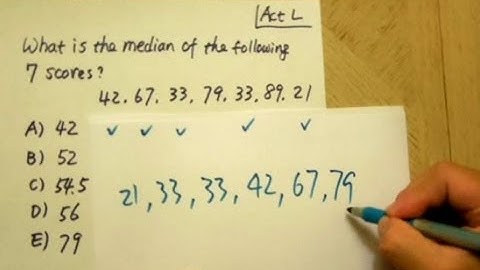 Act L
What is the median of the following
7 scores?
42. 67. 33. 79. 33. 89. 21
A) 42
B) 52
C) 54.5
D) 56
E) 79
21, 33, 33, 42, 67, 79